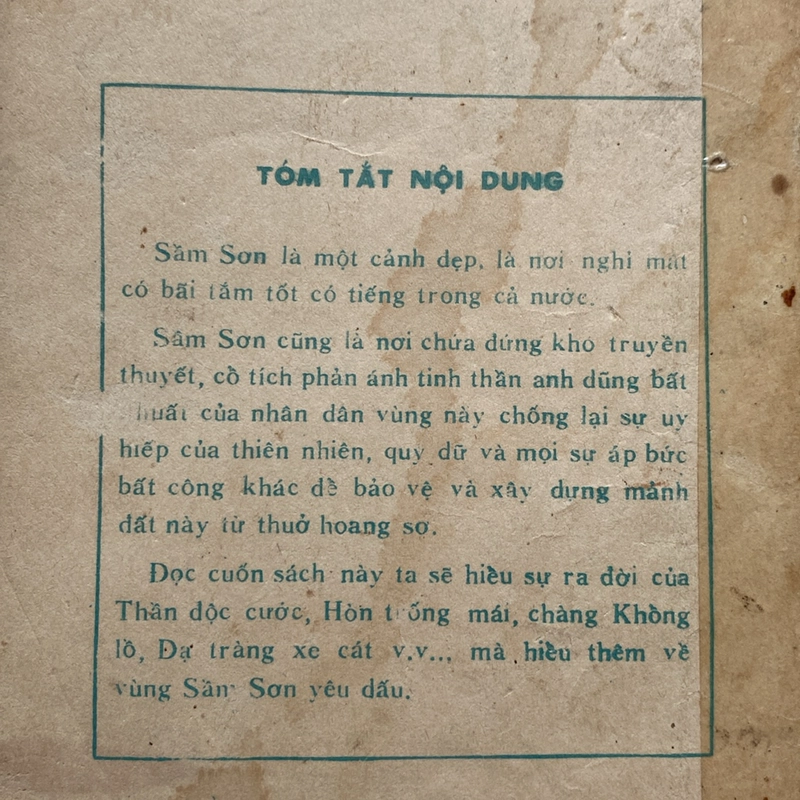 TÓM TẮT NỘI DUNG
Sầm Sơn là một cảnh đẹp, là nơi nghỉ mát
có bãi tắm tốt có tiếng trong cả nước.
Sầm Sơn cũng là nơi chứa đứng kho truyền
thuyết, cồ tích phản ánh tinh thần anh dũng bất
khuất của nhân dân vùng này chống lại sự uy
hiếp của thiên nhiên, quỷ dữ và mọi sự áp bức
bất công khác đề bảo vệ và xây dựng mảnh
đất này từ thuở hoang sơ.
Đọc cuốn sách này ta sẽ hiều sự ra đời của
Thần độc cước, Hòn trống mái, chàng Khồng
lồ, Dạ tràng xe cát v.v... mà hiều thêm về
vùng Sầm Sơn yêu dấu.